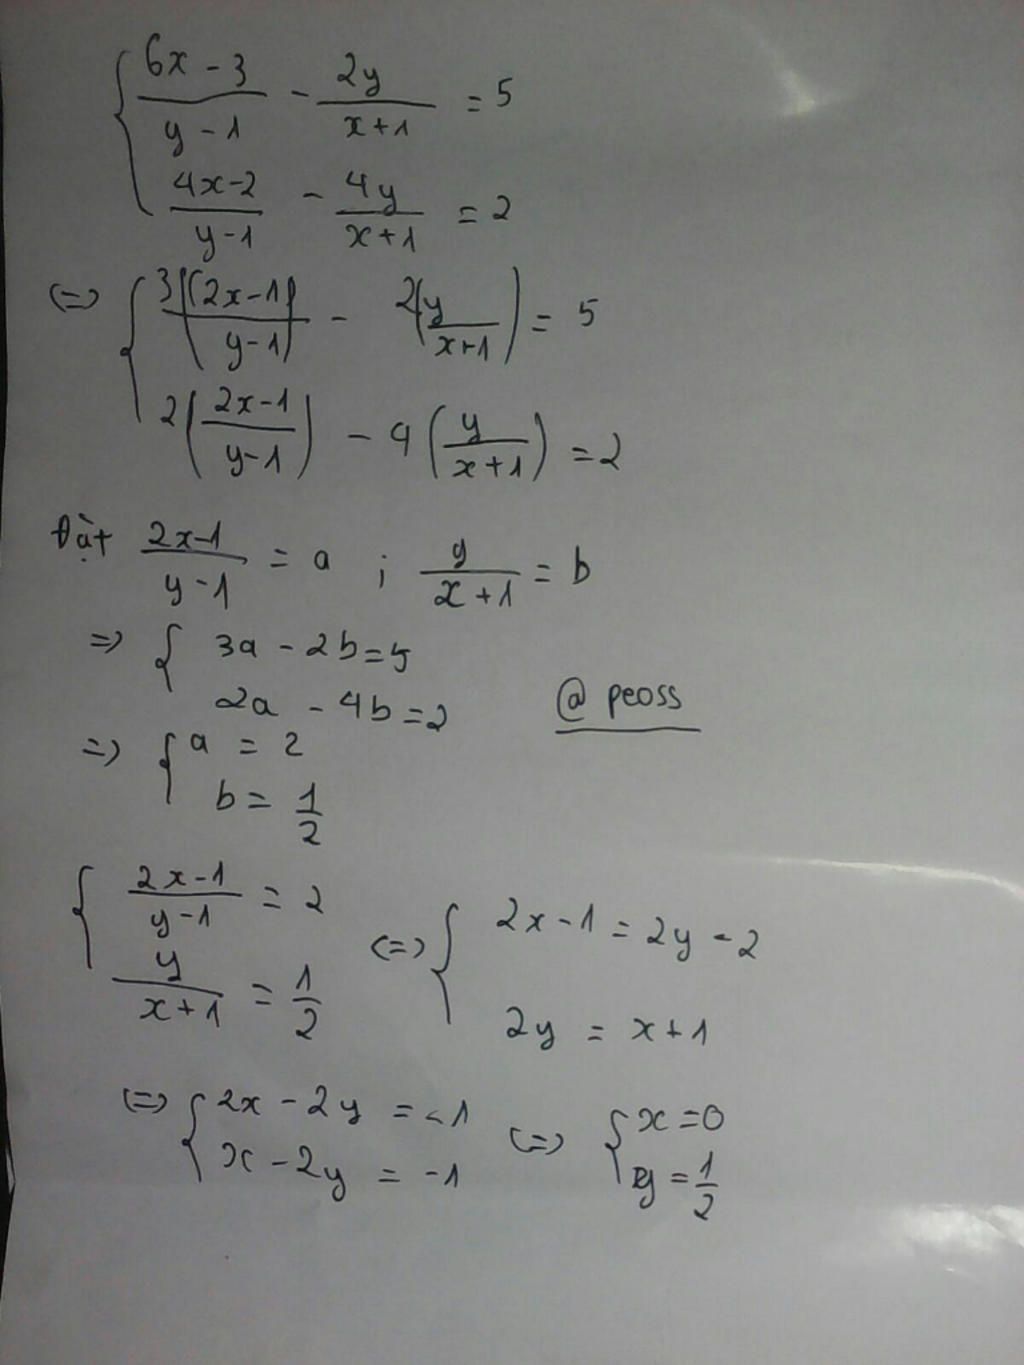 { (6x - 3)/(y - 1) - 2y/(x+1) = 5
(4x-2)/(y-1) - 4y/(x+1) = 2
(=) { 3((2x-1)/(y-1)) - 2(y/(x+1)) = 5
2((2x-1)/(y-1)) - 4(y/(x+1)) = 2
Đặt (2x-1)/(y-1) = a ; y/(x+1) = b
=) { 3a - 2b = 5
2a - 4b = 2
@ peoss
=) { a = 2
b = 1/2
{ (2x-1)/(y-1) = 2 (=) { 2x-1 = 2y - 2
y/(x+1) = 1/2 2y = x+1
(=) { 2x - 2y = -1 (=) { x = 0
x - 2y = -1 y = 1/2